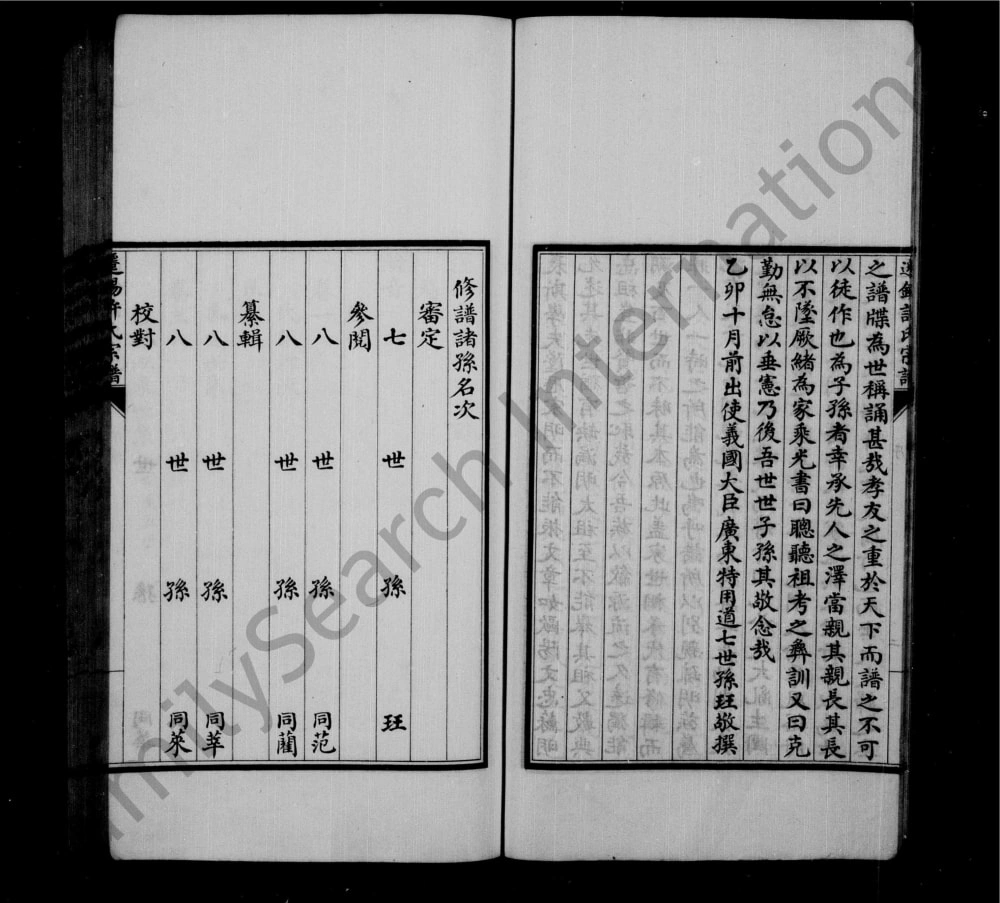 之譜牒為世稱誦甚哉孝友之重於天下而譜之不可
以徒作也為子孫者幸承先人之澤當親其親長其長
以不墜厥緒為家乘光書曰聰聽祖考之彝訓又曰克
勤無怠以垂憲乃後吾世世子孫其敬念哉
乙卯十月前出使義國大臣廣東特用道七世孫珏敬撰
修譜諸孫名次
審定
七世孫珏
參閱
八世孫同范
八世孫同藺
纂輯
八世孫同莘
八世孫同萊
校對
許氏宗譜
FamilySearch International